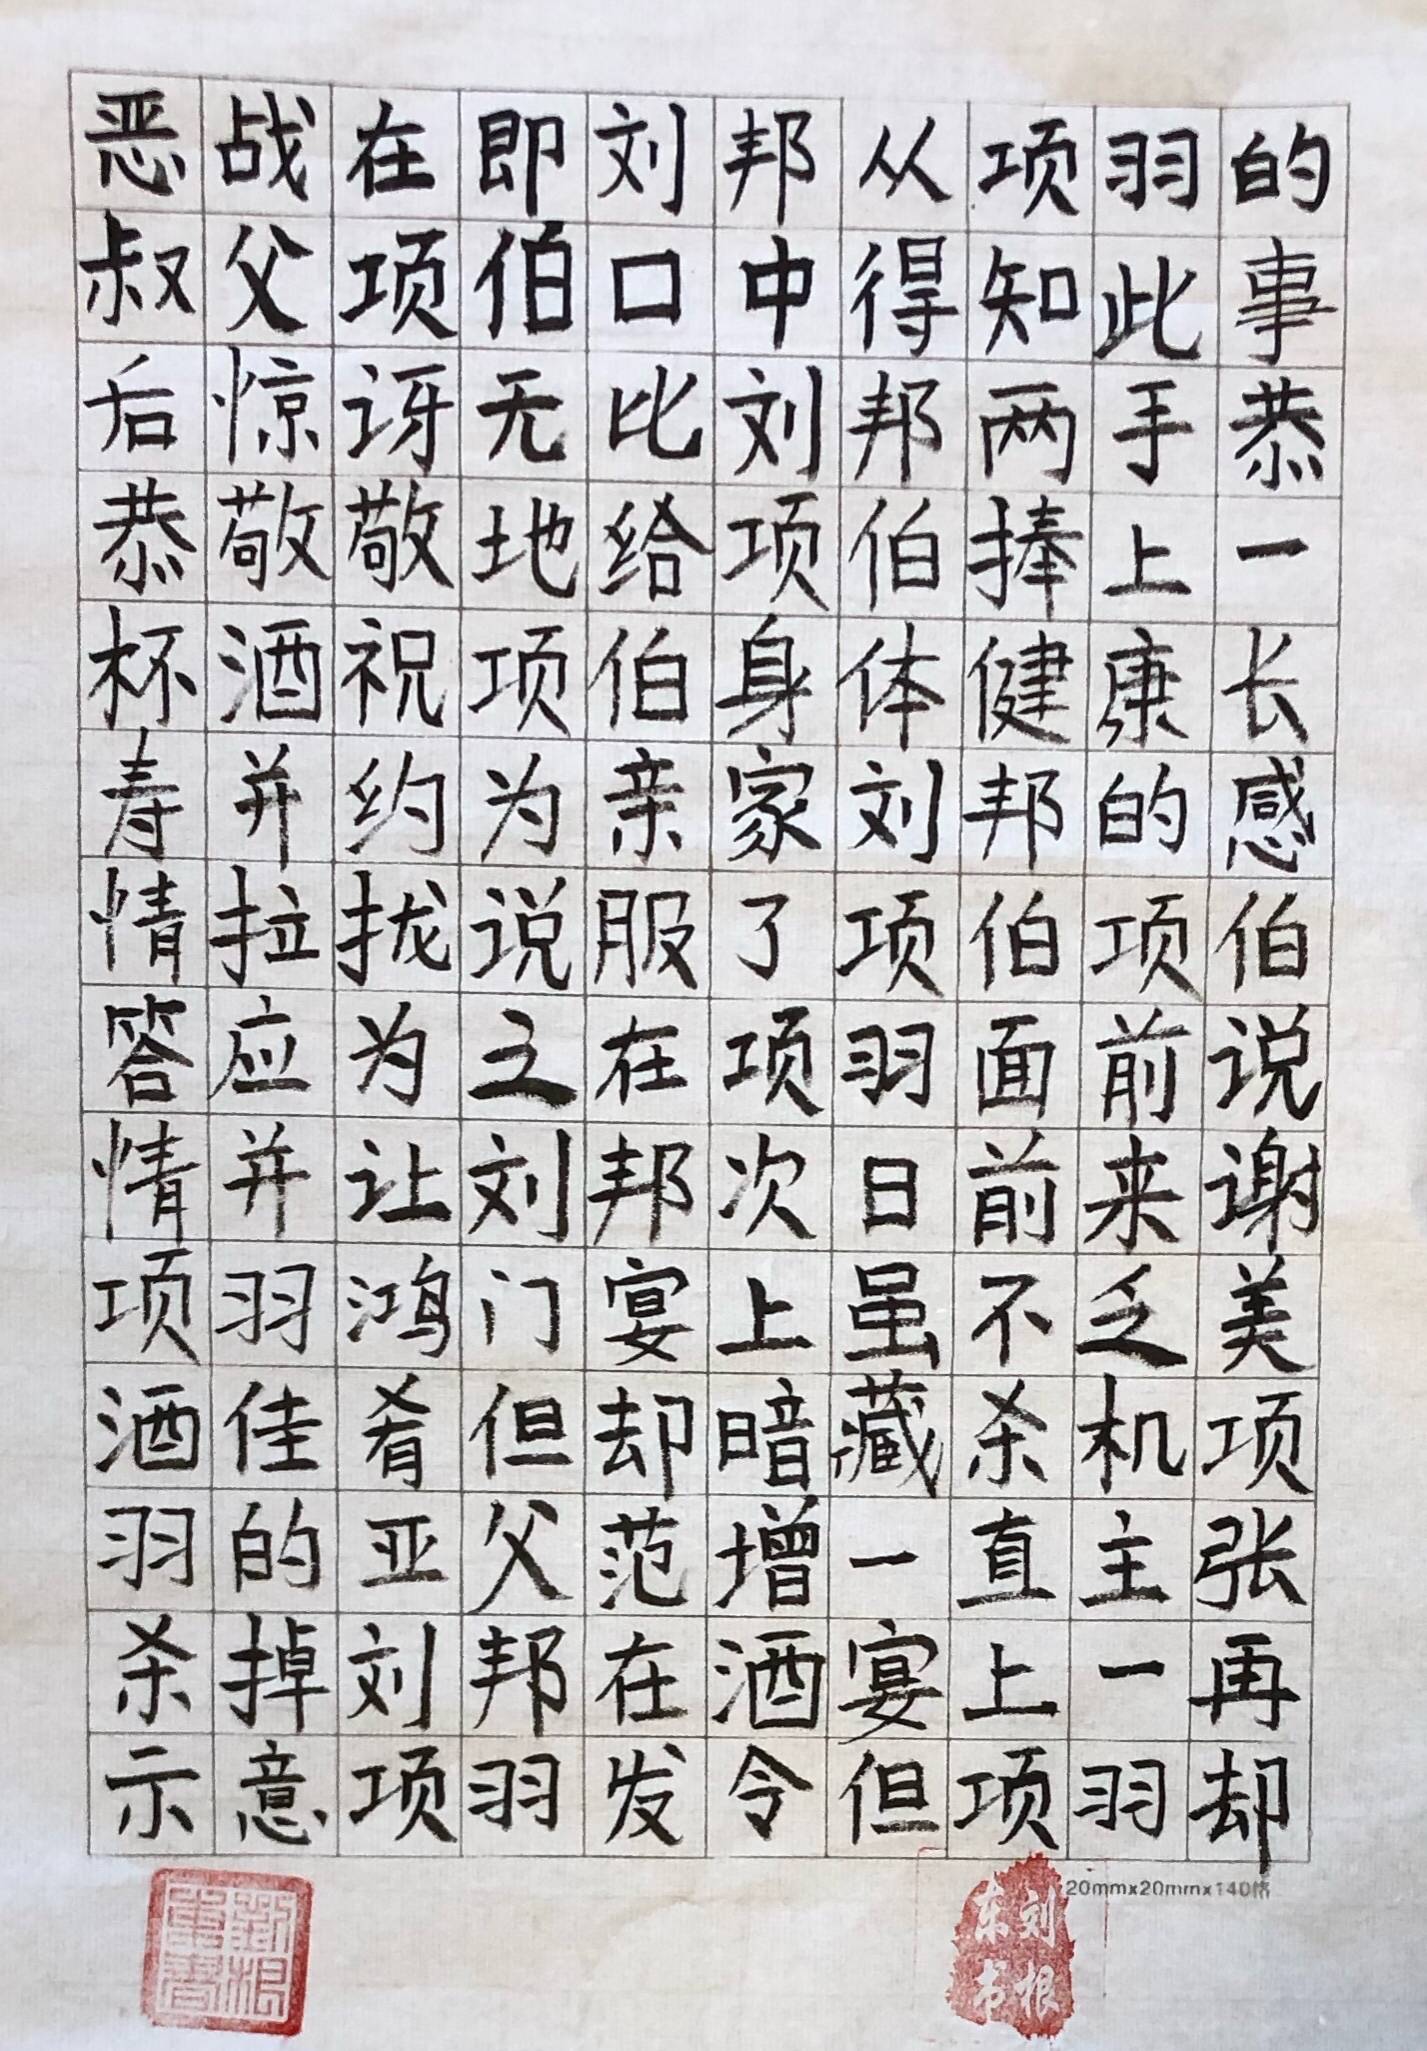 恶战在即刘邦从项羽的
叔父项伯口中得知此事
后惊讶无比刘邦两手恭
恭敬敬地给项伯捧上一
杯酒祝项伯身体健康长
寿并约为亲家刘邦的感
情拉拢说服了项伯项伯
答应为之在项羽面前说
情并让刘邦次日前来谢
项羽鸿门宴上虽不乏美
酒佳肴但却暗藏杀机项
羽的亚父范增一直主张
杀掉刘邦在酒宴上一再
示意项羽发令但项羽却
20mmx20mmx140格
刘根
东书